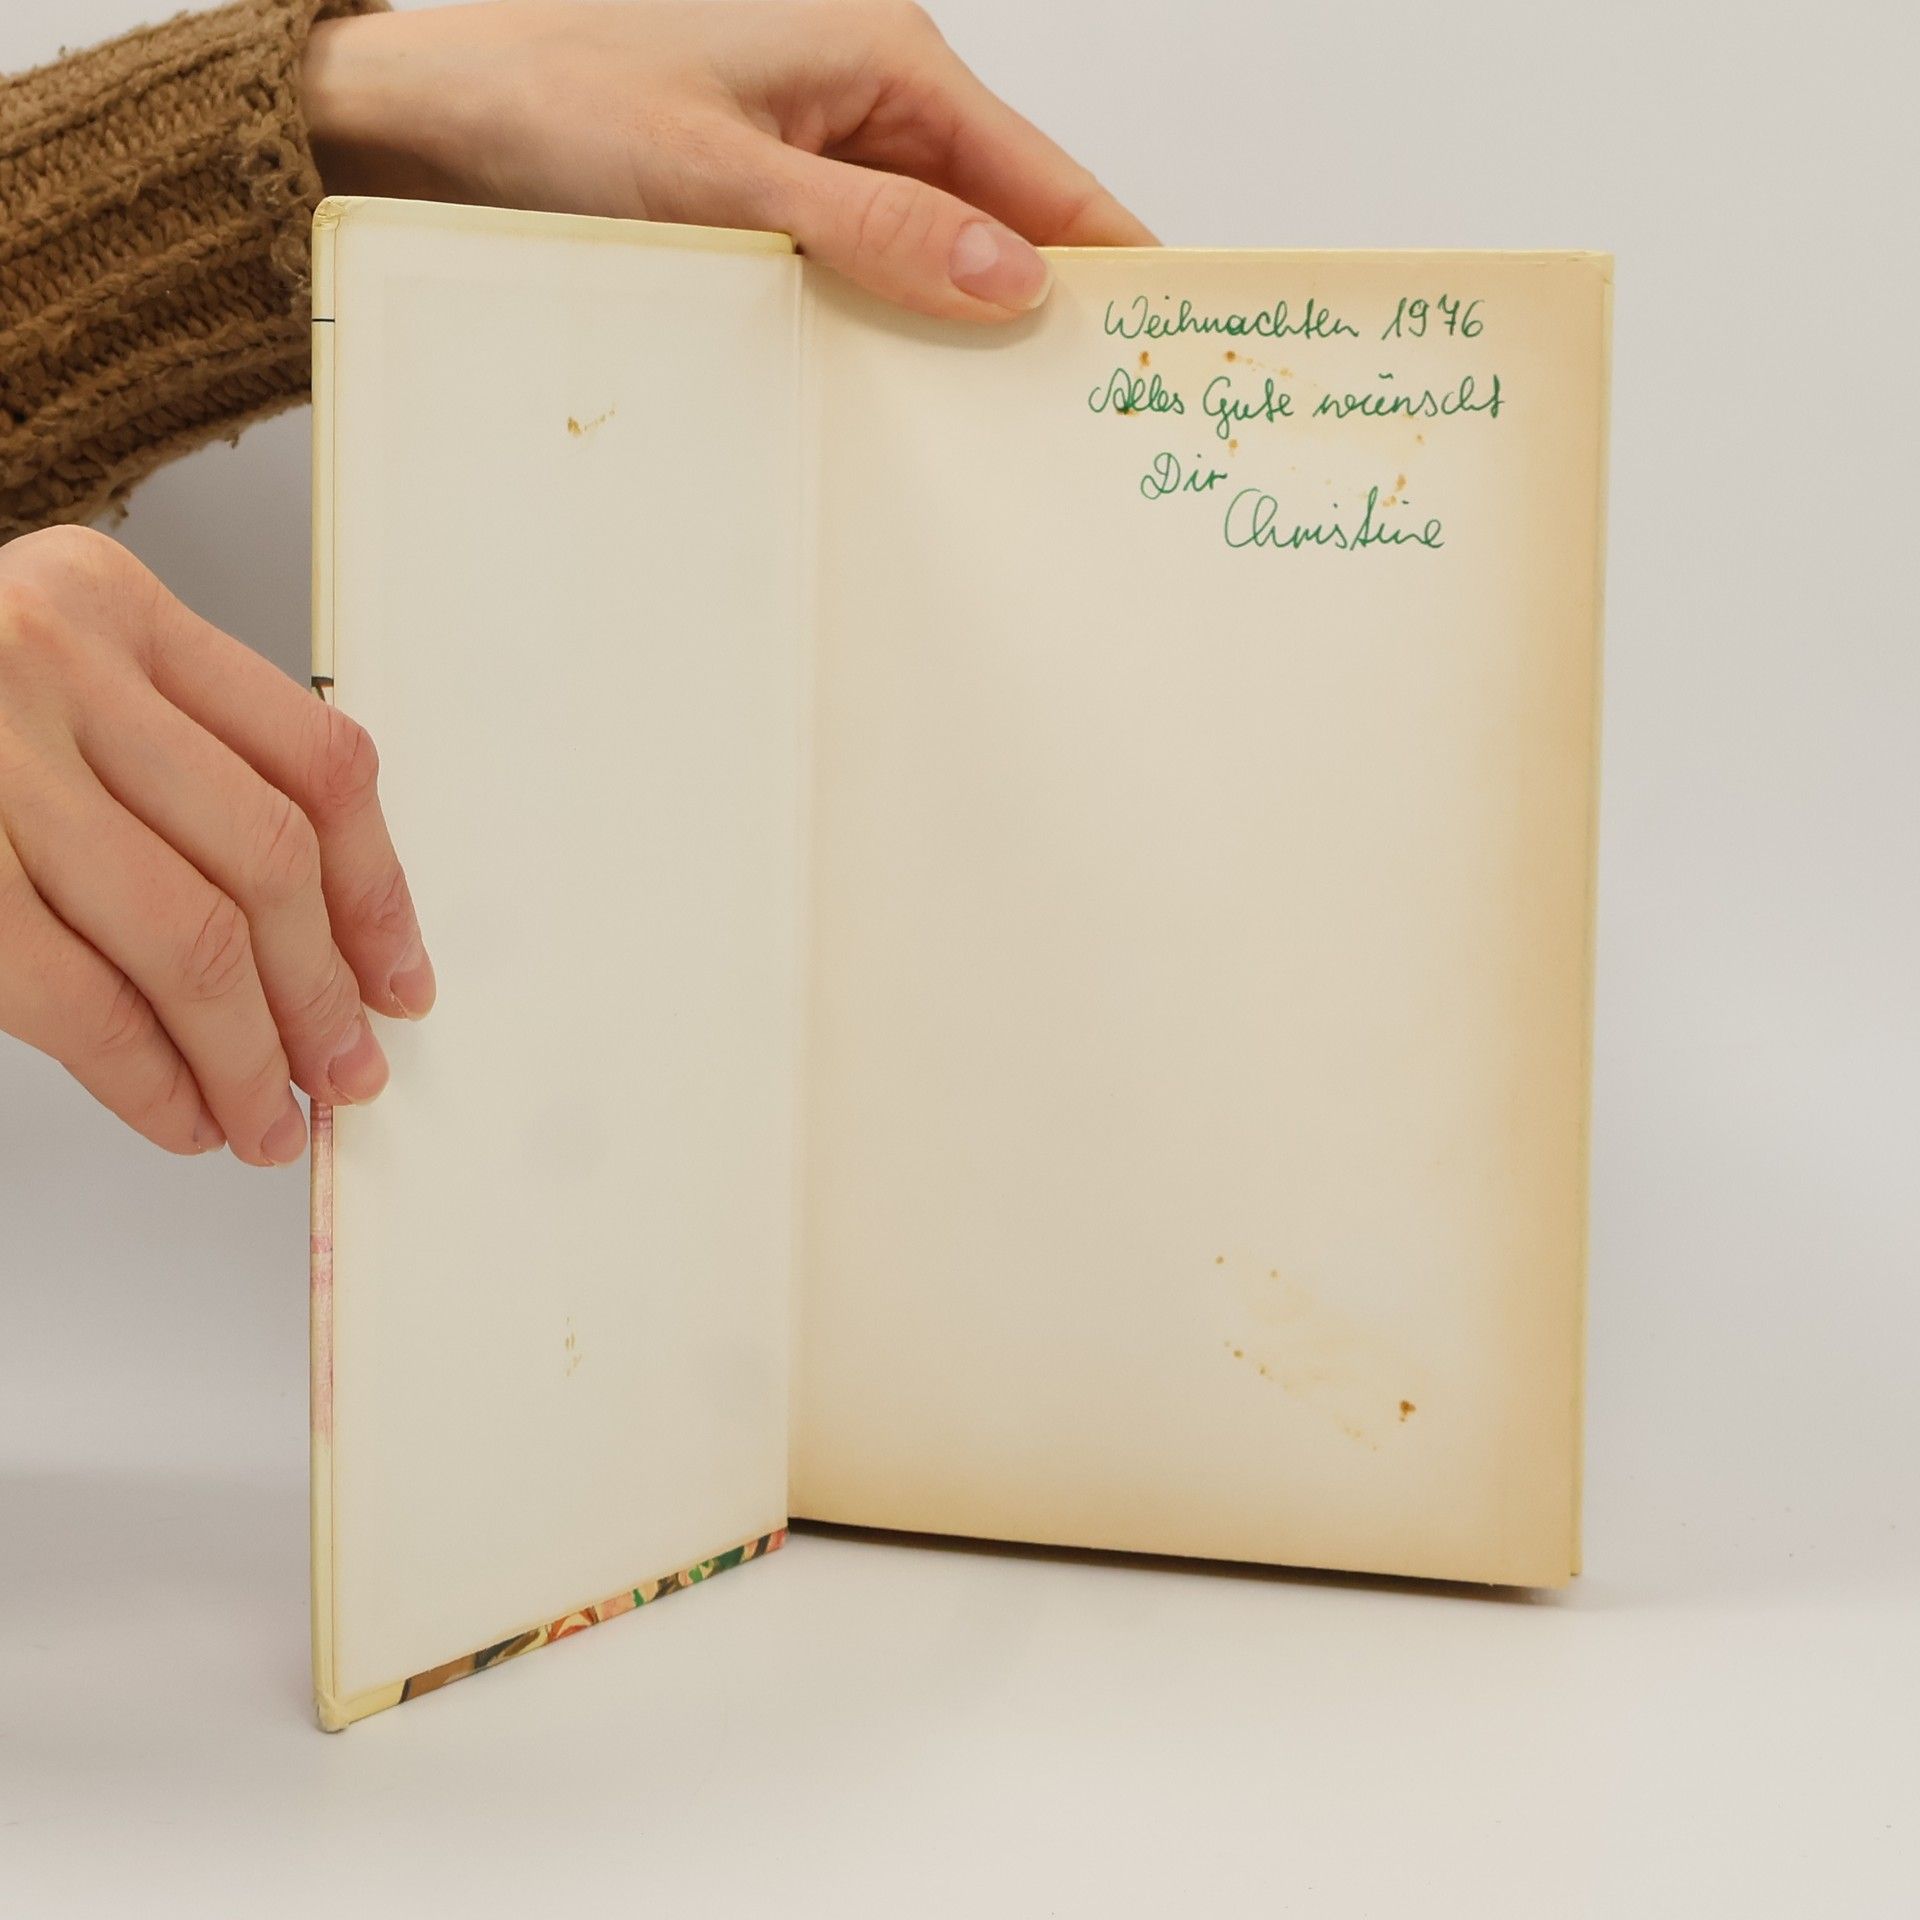 Weihnachten 1976
Alles Gute wünscht
Dir
Christine